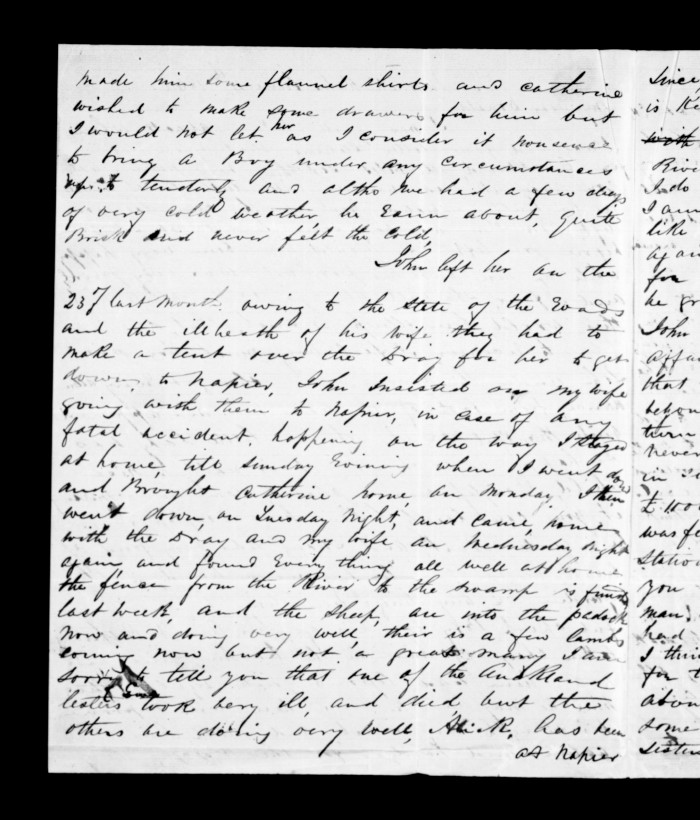 made him some flannel shirts and catherine
wished to make some drawers for him but
I would not let her as I consider it nonsence
to bring a Boy under any circumstances
up to tenderly and altho we had a few days
of very cold weather he Eann about, quite
Brisk and never felt the Cold,
John left her on the
23rd last month owing to the state of the Roads
and the ill heath of his wife they had to
make a tent over the Dray for her to get
down, to Napier, John Insisted on my wife
going with them to Napier, in case of any
fatal accident, happening on the way I stayed
at home, till Sunday Evining when I went down
and Brought Catherine home, on Monday, I then
went down, on Tuesday Night, and came home
with the Dray and my wife on Wednesday night
again, and found Every thing all well at home
the fence from the River to the swamp is finisd
last week, and the sheep, are into the padock
now and doing very well, their is a few lambs
coming now but not a great many I am
sorry to tell you that one of the Auckland
took very ill, and died but the
others are doing very well, Alick, has been
at Napier
Since
is
Rive
I do
I am
like
again
for
he
John
affa
that
then
never
in
to
was
station
you
man,
had
I thin
for
abou
some
sister